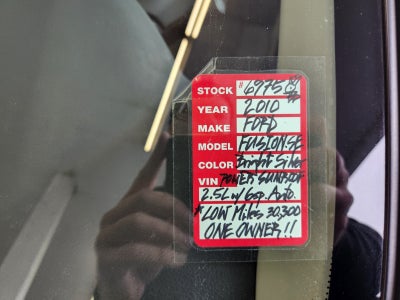 STOCK "6975"
YEAR 2010
MAKE FORD
MODEL FUSION SE
COLOR Bright Silver
VIN POWER SUNROOF
2.5L w/ 6sp. Auto.
*LOW Miles 30,300
ONE OWNER!!